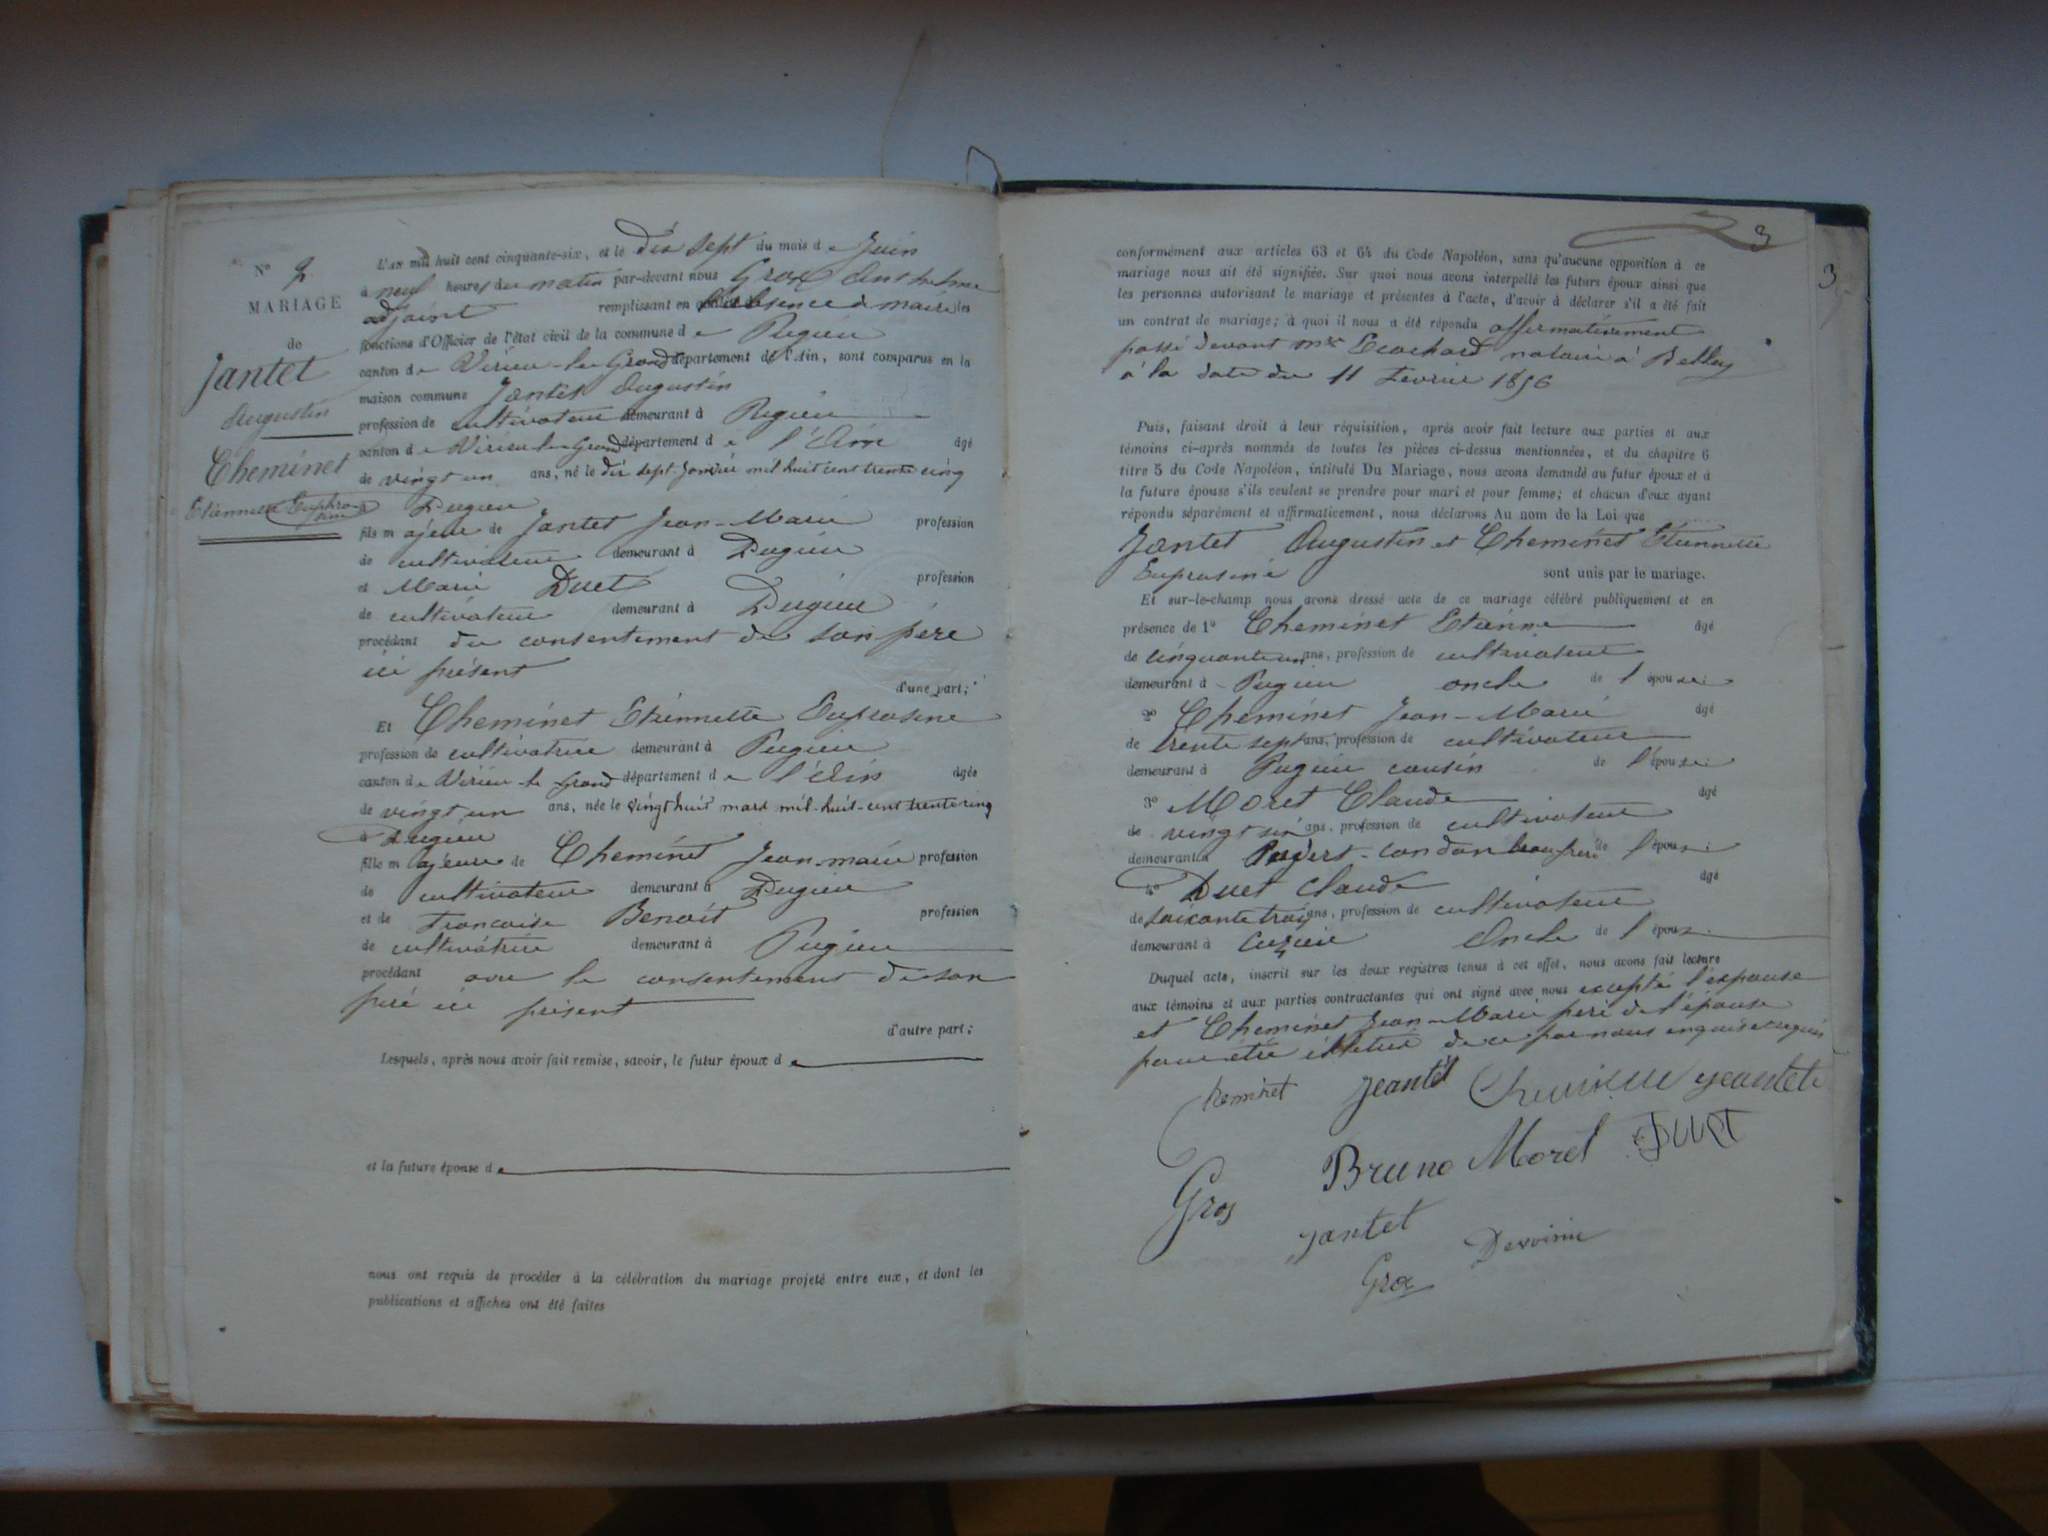 N° 2
MARIAGE
de
Jantet
Augustin
Cheminet
Etiennette Euphrosine
L'an mil huit cent cinquante-six, et le dix sept du mois de Juin
à neuf heures du matin par-devant nous Grox Anthelme
adjoint remplissant en l'absence du maire les
fonctions d'Officier de l'état civil de la commune de Pugieu
canton de Virieu-le-Grand département de l'Ain, sont comparus en la
maison commune Jantet Augustin
profession de cultivateur demeurant à Pugieu
canton de Virieu-le-Grand département de l'Ain âgé
de vingt un ans, né le dix sept Janvier mil huit cent trente cinq
Pugieu
fils majeur de Jantet Jean-Marie profession
de cultivateur demeurant à Pugieu
et Marie Duet profession
de cultivateur demeurant à Pugieu
procédant du consentement de son père
ici présent
d'une part;
Et Cheminet Etiennette Euprosine
profession de cultivatrice demeurant à Pugieu
canton de Virieu-le-Grand département de l'Ain âgée
de vingt un ans, née le vingt huit mars mil-huit-cent trente cinq
à Pugieu
fille majeure de Cheminet Jean-marie profession
de cultivateur demeurant à Pugieu
et de Francoise Benoit profession
de cultivatrice demeurant à Pugieu
procédant avec le consentement de son
père ici présent
d'autre part;
Lesquels, après nous avoir fait remise, savoir, le futur époux de
et la future épouse de
nous ont requis de procéder à la célébration du mariage projeté entre eux, et dont les
publications et affiches ont été faites
3
3
conformément aux articles 63 et 64 du Code Napoléon, sans qu'aucune opposition à ce
mariage nous ait été signifiée. Sur quoi nous avons interpellé les futurs époux ainsi que
les personnes autorisant le mariage et présentes à l'acte, d'avoir à déclarer s'il a été fait
un contrat de mariage; à quoi il nous a été répondu affirmativement
passé devant mtre Ecochard notaire à Belley
à la date du 11 Fevrier 1856
Puis, faisant droit à leur réquisition, après avoir fait lecture aux parties et aux
témoins ci-après nommés de toutes les pièces ci-dessus mentionnées, et du chapitre 6
titre 5 du Code Napoléon, intitulé Du Mariage, nous avons demandé au futur époux et à
la future épouse s'ils veulent se prendre pour mari et pour femme; et chacun d'eux ayant
répondu séparément et affirmativement, nous déclarons Au nom de la Loi que
Jantet Augustin et Cheminet Etiennette
Euprosine sont unis par le mariage.
Et sur-le-champ nous avons dressé acte de ce mariage célébré publiquement et en
présence de 1° Cheminet Etienne âgé
de cinquante un ans, profession de cultivateur
demeurant à Pugieu oncle de l'épouse
2° Cheminet Jean-Marie âgé
de trente sept ans, profession de cultivateur
demeurant à Pugieu cousin de l'épouse
3° Moret Claude âgé
de vingt six ans, profession de cultivateur
demeurant à Pugieu-condon beau frère de l'époux
4° Duet Claude âgé
de soixante trois ans, profession de cultivateur
demeurant à Cuzieu Oncle de l'époux
Duquel acte, inscrit sur les deux registres tenus à cet effet, nous avons fait lecture
aux témoins et aux parties contractantes qui ont signé avec nous excepté l'epouse
et Cheminet Jean-Marie père de l'épouse
pour être illettré de ce par nous enquis et requis
Cheminet Jeantet Cheminet Jeantet
Bruno Morel Duet
Gros
Jantet
Grox